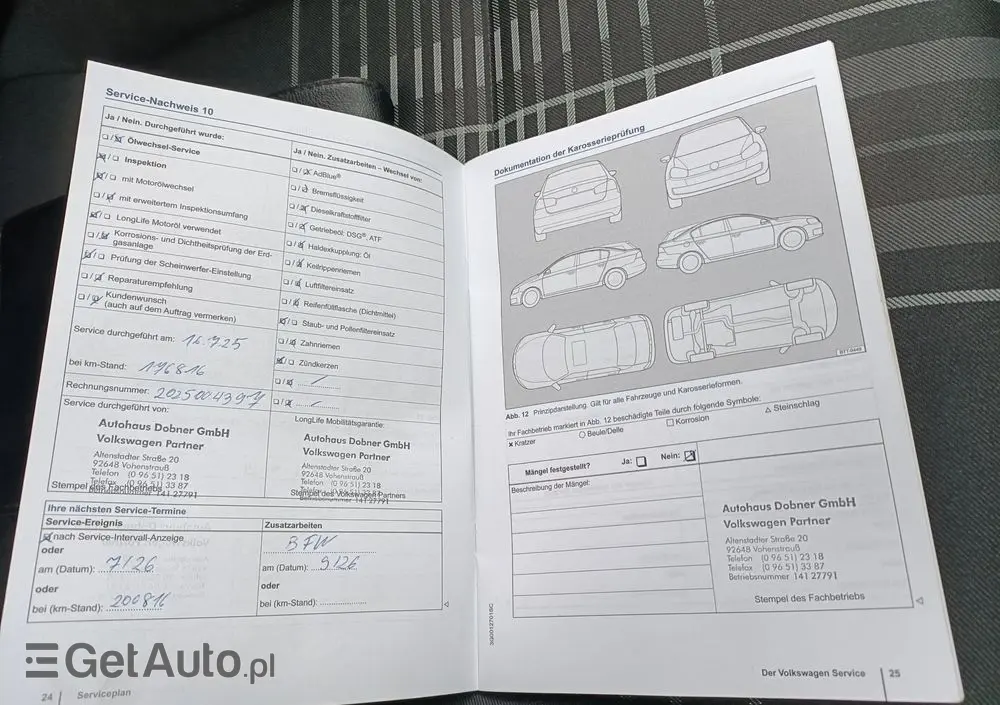 Service-Nachweis 10
Ja / Nein. Durchgeführt wurde:
Ölwechsel-Service
Inspektion
mit Motorölwechsel
mit erweitertem Inspektionsumfang
LongLife Motoröl verwendet
Korrosions- und Dichtheitsprüfung der Erd-
gasanlage
Prüfung der Scheinwerfer-Einstellung
Reparaturempfehlung
Kundenwunsch
(auch auf dem Auftrag vermerken)
Service durchgeführt am: 16.7.25
bei km-Stand: 176816
Rechnungsnummer:
Service durchgeführt von:
Autohaus Dobner GmbH
Volkswagen Partner
Altenstadter Straße 20
92648 Vohenstrauß
Telefon (0 96 51) 23 18
Telefax (0 96 51) 33 87
Stempel des Fachbetriebs
Betriebsnummer 141 27791
Ja / Nein. Zusatzarbeiten – Wechsel von:
AdBlue®
Bremsflüssigkeit
Dieselkraftstofffilter
Getriebeöl: DSG®, ATF
Haldexkupplung: Öl
Keilrippenriemen
Luftfiltereinsatz
Reifenfüllflasche (Dichtmittel)
Staub- und Pollenfiltereinsatz
Zahnriemen
Zündkerzen
LongLife Mobilitätsgarantie:
Autohaus Dobner GmbH
Volkswagen Partner
Altenstadter Straße 20
92648 Vohenstrauß
Telefon (0 96 51) 23 18
Telefax (0 96 51) 33 87
Stempel des Volkswagen Partners
Betriebsnummer 141 27791
Ihre nächsten Service-Termine
Service-Ereignis
nach Service-Intervall-Anzeige
oder
am (Datum): 7/26
oder
bei (km-Stand): 200816
Zusatzarbeiten
BFW
am (Datum): 9/26
oder
bei (km-Stand):
24 | Serviceplan
GetAuto.pl
Dokumentation der Karosserieprüfung
BTT-0449
Abb. 12 Prinzipdarstellung. Gilt für alle Fahrzeuge und Karosserieformen.
Ihr Fachbetrieb markiert in Abb. 12 beschädigte Teile durch folgende Symbole:
× Kratzer ○ Beule/Delle □ Korrosion △ Steinschlag
Mängel festgestellt? Ja: Nein:
Beschreibung der Mängel:
Autohaus Dobner GmbH
Volkswagen Partner
Altenstadter Straße 20
92648 Vohenstrauß
Telefon (0 96 51) 23 18
Telefax (0 96 51) 33 87
Betriebsnummer 141 27791
Stempel des Fachbetriebs
Der Volkswagen Service | 25